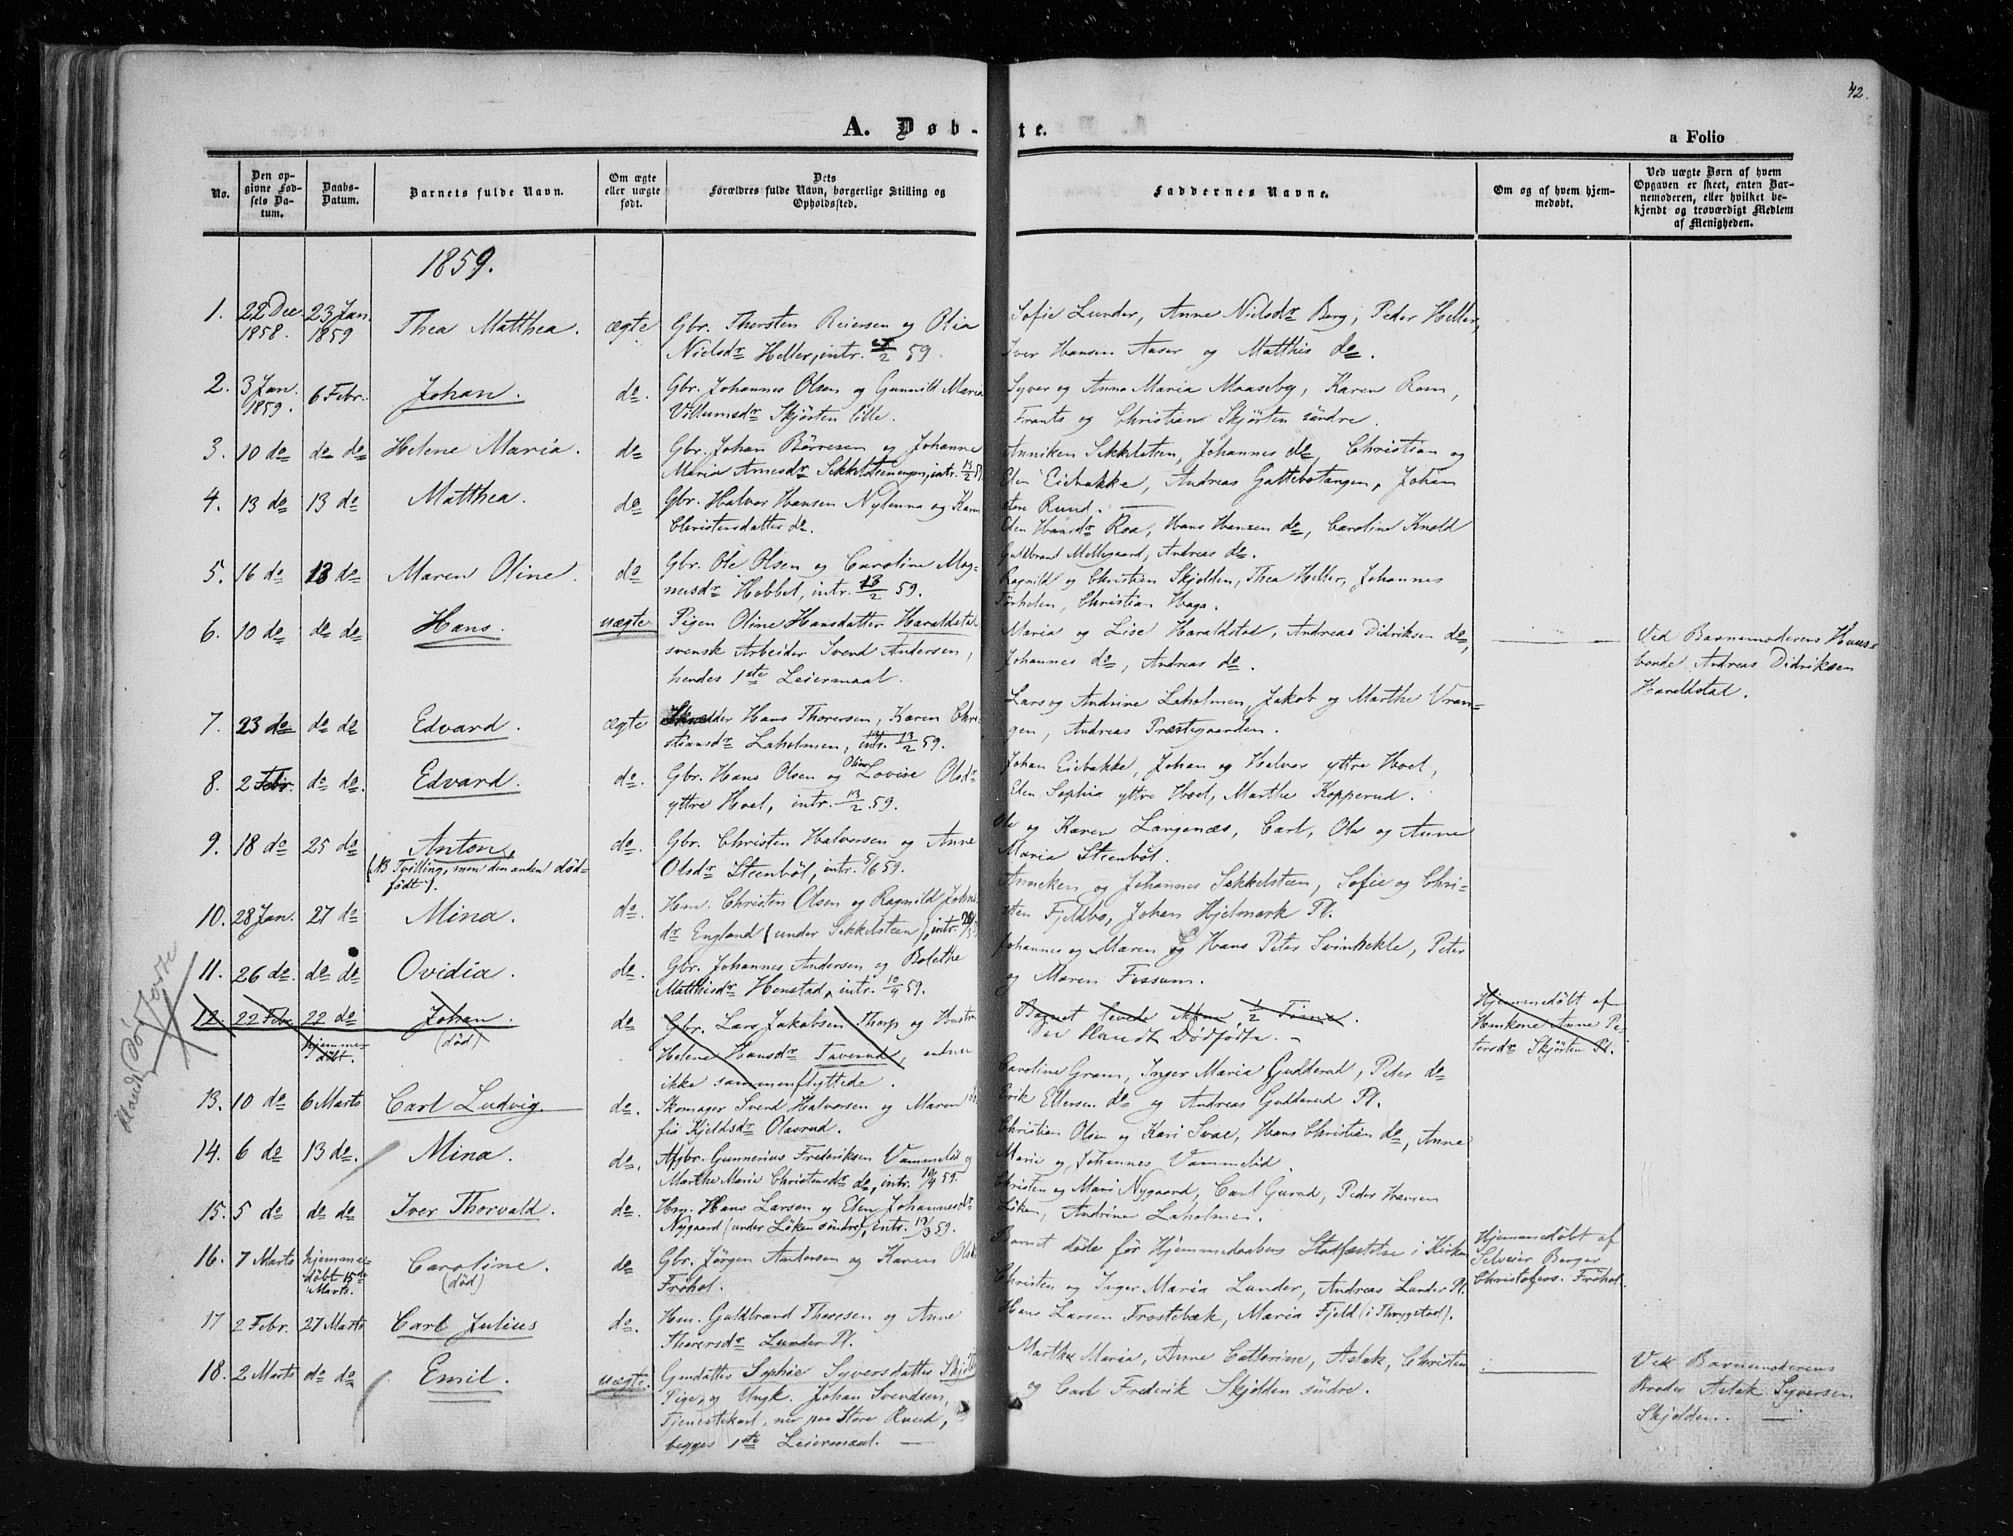 42.
A. Døb-te.
a Folio
No.
Den opgivne Fødsels Datum.
Daabs-Datum.
Barnets fulde Navn.
Om ægte eller uægte født.
Dets Forældres fulde Navn, borgerlige Stilling og Opholdssted.
Faddernes Navne.
Om og af hvem hjemmedøbt.
Ved uægte Børn af hvem Opgaven er skeet, enten Barnemoderen, eller hvilket bekjendt og troværdigt Medlem af Menigheden.
1859.
1. 22 Dec 1858. 23 Jan. 1859 Thea Matthea. ægte Gbr. Thorsten Reiersen og Olia
Nielsdr Heller, intr. 59.
Sofie Lunder, Anne Nielsdr Berg, Peder Heller,
Iver Hansen Aaser og Matthis do.
2. 3 Jan. 1859. 6 Febr. Johan. do. Gbr. Johannes Olsen og Gunnild Maria
Villumsdr Skjørten lille.
Syver og Anna Maria Maaseby, Karen Rom,
Frants og Christian Skjørten søndre.
3. 10 do do do Helene Maria. do Gbr. Johan Børresen og Johanne
Maria Arnesdr Sekkelstenengen, intr. 13/2 59
Anniken Sekkelsten, Johannes do, Christian og
Elen Eiebakke, Andreas Gattebotangen, Johan
store Ruud.
4. 13 do 13 do Matthea. do Gbr. Halvor Hansen Nylenna og Karen
Christensdatter do.
Elen Hansdr Roa, Hans Hansen do, Caroline Knold
Guldbrand Mellegaard, Andreas do.
5. 16 do 13 do Maren Oline. do Gbr. Ole Olsen og Caroline Mag-
nusdr Hobbel, intr. 13/2 59.
Ragnild og Christian Skjolden, Thea Heller, Johannes
Tørhelen, Christian Haga.
6. 10 do do do Hans. uægte Pigen Oline Hansdatter Haraldstad
svensk Arbeider Svend Andersen,
hendes 1ste Leiermaal.
Maria og Lise Haraldstad, Andreas Didriksen do,
Johannes do, Andreas do.
Ved Barnemoderens Huus-
bonde Andreas Didriksen
Haraldstad.
7. 23 do do do Edvard. ægte Skrædder Hans Thoresen, Karen Chri-
stiansdr Laholmen, intr. 13/2 59.
Lars og Andrine Laholmen, Jakob og Marthe Vran-
gen, Andreas Præstegaarden.
8. 2 Febr. do do. Edvard. do. Gbr. Hans Olsen og Oline Lovise Olsdr
yttre Hoel, intr. 13/2 59.
Johan Eiebakke, Johan og Halvor yttre Hoel,
Elen Sophia yttre Hoel, Marthe Kopperud.
9. 18 do 25 do Anton, do. Gbr. Christen Halvorsen og Anne
(NB Tvilling, men den anden død-
født).
Olsdr Steenbøl, intr. 5/6 59.
Ole og Karen Langenæs, Carl, Ole og Anne
Maria Steenbøl.
10. 28 Jan. 27 do Mina. do. Hm. Christen Olsen og Ragnild Johns
dr England (under Sekkelsteen), intr.
Anneken og Johannes Sekkelsteen, Sofie og Chri-
sten Fjeldbo, Johan Hjelmark Pl.
11. 26 do. do do Ovidia. do. Gbr. Johannes Andersen og Bolethe
Matthisdr Henstad, intr. 10/4 59.
Johannes og Maren og Hans Peter Svinhekle, Peter
og Maren Fossum.
12. 22 Febr 22 do hjemme-døbt. Johan. (død) do Gbr. Lars Jakobsen Thorp og Hustru
Helene Hansdr Taverud, endnu
ikke sammenflyttede.
Barnet levede ikkun 1/2 Time.
Var Maudt Dødfødte.
Hjemmedøbt af
Huuskone Anne Pe-
tersdr Skjørten Pl.
13. 10 do 6 Marts Carl Ludvig do. Skomager Svend Halvorsen og Maren So
fia Kjeldsdr Olasrud.
Caroline Gram, Inger Maria Gudderud, Peder do
Erik Ellersen do og Andreas Gudderud Pl.
14. 6 do 13 do. Mina. do. Afgbr. Gunnerius Frederiksen Vammelid og
Marthe Marie Christensdr do, intr. 10/4 59.
Christian Olsen og Kari Svae, Hans Christian do, Anne
Marie og Johannes Vammelid.
15. 5 do do do Iver Thorvald. do. Hm. Hans Larsen og Elen Johannesdr
Nygaard (under Løken søndre), intr. 13/3 59.
Christen og Mari Nygaard, Carl Gurud, Peder Hansen
Løken, Andrine Laholmen.
16. 7 Marts hjemme-døbt 15de Marts. Caroline. (død) do Gbr. Jørgen Andersen og Karen Olsdr
Frøhol.
Barnet døde før Hjemmedaabens Stadfæstelse i Kirken
Hjemmedøbt af
Selveier Børger
Christofers. Frøhol.
17 2 Febr. 27 Marts Carl Julius do. Hm. Guldbrand Thoresen og Anne
Thorersdr Lunder Pl.
Christen og Inger Maria Lunder, Andreas Lunder Pl.
Hans Larsen Frostebæk, Maria Fjeld (i Thrygstad).
18. 2 Marts do do Emil. uægte. Gmdatter Sophie Syversdatter Skjolden
Pige, og Ungk. Johan Svendsen,
Tjenestekarl, nu paa Store Ruud,
begges 1ste Leiermaal.
Marthe Maria, Anne Catherine, Aslak, Christen
og Carl Frederik Skjolden søndre.
Ved Barnemoderens
Broder Aslak Syversen
Skjolden.